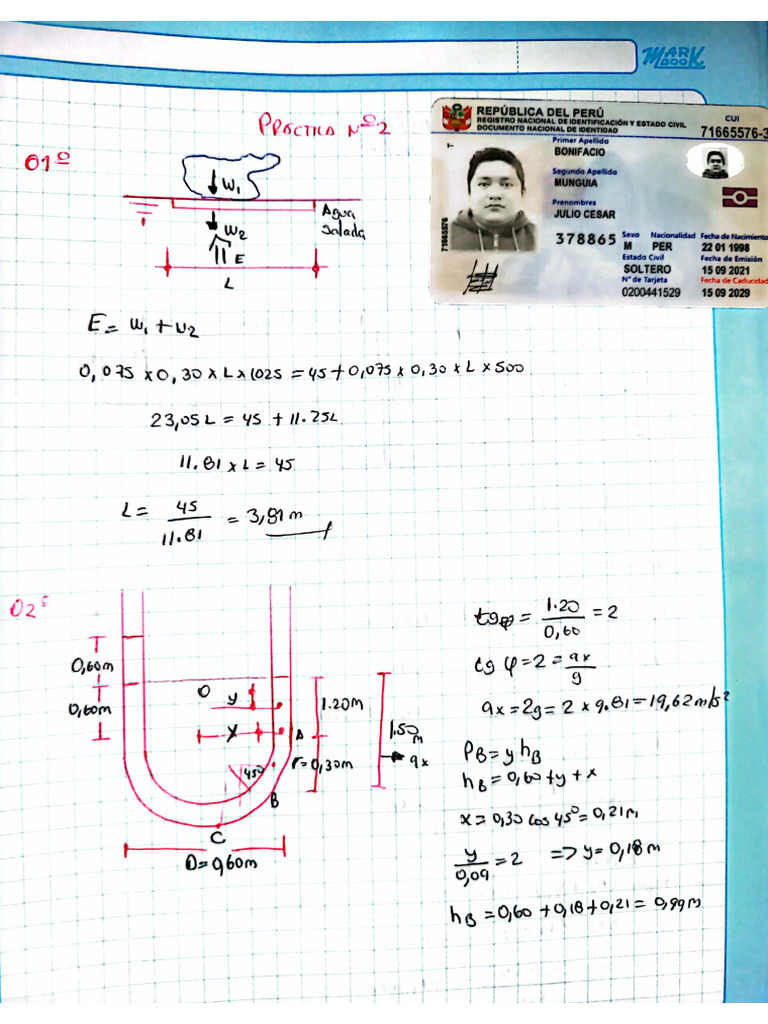 MARK BOOK
PRÁCTICA Nº2
REPÚBLICA DEL PERÚ
REGISTRO NACIONAL DE IDENTIFICACIÓN Y ESTADO CIVIL
DOCUMENTO NACIONAL DE IDENTIDAD
CUI
71665576-3
Primer Apellido
BONIFACIO
Segundo Apellido
MUNGUIA
Prenombres
JULIO CESAR
378865
Sexo Nacionalidad Fecha de Nacimiento
M PER 22 01 1998
Estado Civil Fecha de Emisión
SOLTERO 15 09 2021
N° de Tarjeta Fecha de Caducidad
0200441529 15 09 2029
71665576
01º
W1
Agua
Salada
W2
E
L
E = W1 + W2
0,075 x 0,30 x L x 1025 = 45 + 0,075 x 0,30 x L x 500
23,05 L = 45 + 11.25L
11.81 x L = 45
L = 45 / 11.81 = 3,81 m
02º
0,60m
0,60m
O
y
x
A
1.20m
1.50 m
ax
r=0,30m
45º
B
C
D=0,60m
tgφ = 1.20 / 0,60 = 2
tg φ = 2 = ax / g
ax = 2g = 2 x 9.81 = 19,62 m/s²
PB = γ hB
hB = 0,60 + y + x
x = 0,30 cos 45º = 0,21 m
y / 0,09 = 2 => y = 0,18 m
hB = 0,60 + 0,18 + 0,21 = 0,99 m